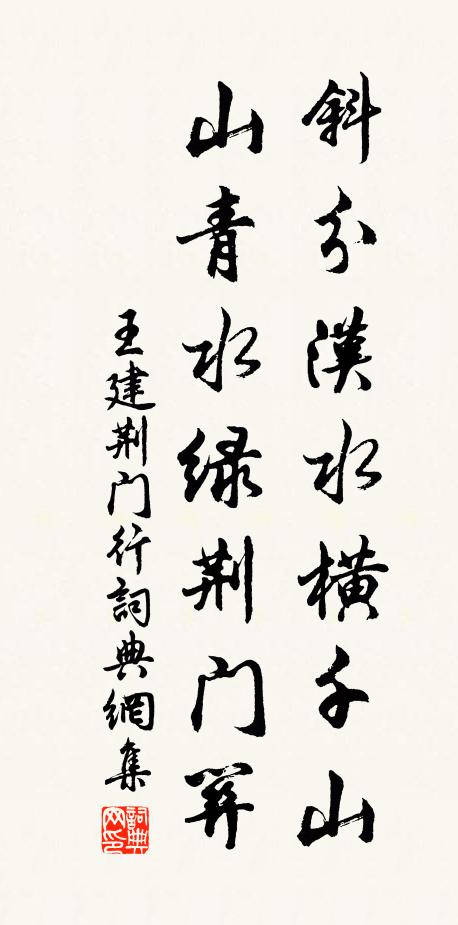 斜分漢水橫千山
山青水緑荆门關
王建荆门行詞典網集
詞典网印